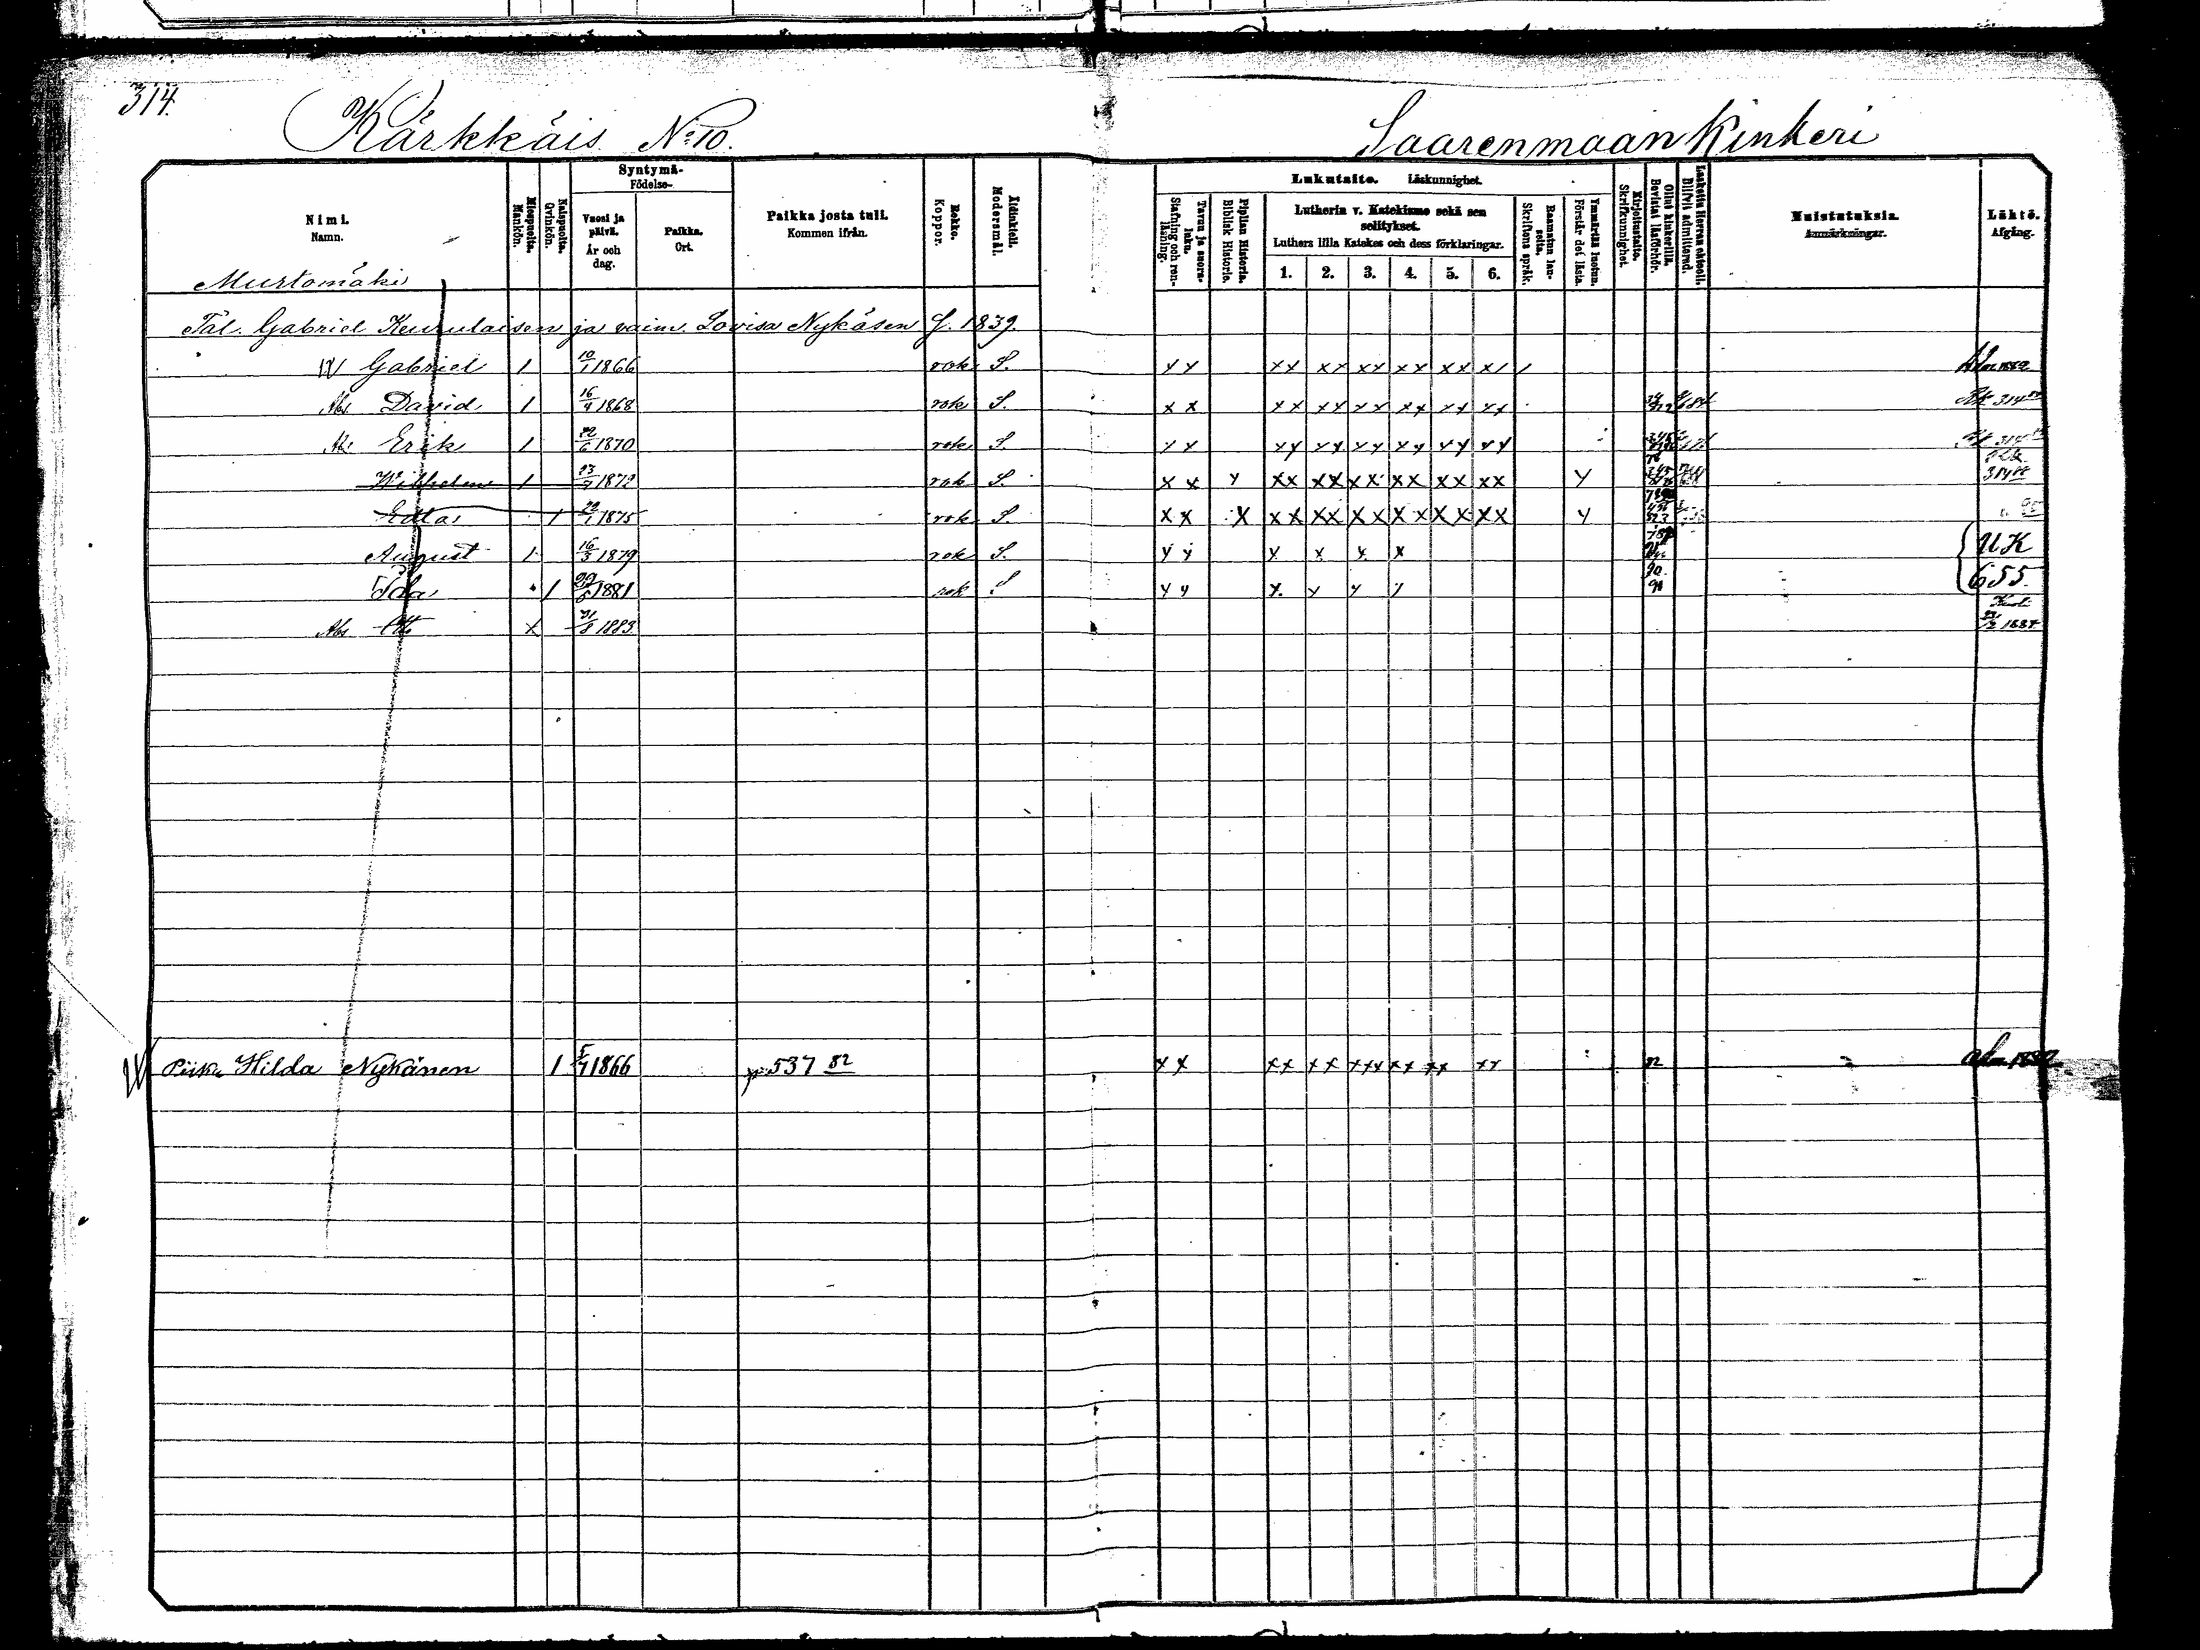 314.
Kärkkäis No 10.
Saarenmaan Kinkeri
Nimi.
Namn.
Miespuolta.
Mankön.
Naispuolta.
Qvinkön.
Syntymä-
Födelse-
Vuosi ja
päivä.
År och
dag.
Paikka.
Ort.
Paikka josta tuli.
Kommen ifrån.
Rokko.
Koppor.
Äidinkieli.
Modersmål.
Lukutaito. Läskunnighet.
Tavuu ja suora-
luku.
Stafning och ren-
läsning.
Piplian Historia.
Biblisk Historie.
Lutherin v. Katekismo sekä sen
selitykset.
Luthers lilla Katekes och dess förklaringar.
1. 2. 3. 4. 5. 6.
Raamatun lau-
seita.
Skriftens språk.
Ymmärtää luetun.
Förstår det lästa.
Kirjoitustaito.
Skrifkunnighet.
Ollut kinkerillä.
Bevistat läsförhör.
Laskettu Herran ehtoolle.
Blifvit admitterad.
Muistutuksia.
Anmärkningar.
Lähtö.
Afgång.
Murtomäki
Tal. Gabriel Keurulaisen ja vaim. Lovisa Nykäsen f. 1839.
Gabriel 1 10/1 1866 rok S. x x xx xx xx xx xx x/ /
Abs David 1 16/4 1868 rok S. x x xx xx xx xx xx xx
Erik 1 22/6 1870 rok S. x x xx xx xx xx xx xx
Wilhelm 1 1872 rok S. x x y xx xx xx xx xx xx y
Edla 1 1875 rok S. x x x xx xx xx xx xx xx y
August 1 16/3 1879 rok S. y y x x x x UK
Ida 1 1881 rok S x x x x 655.
Abs x 1883 1884
Piika Hilda Nykänen 1 5/7 1866 537 82 x x xx xx xxx xx xx xx 82